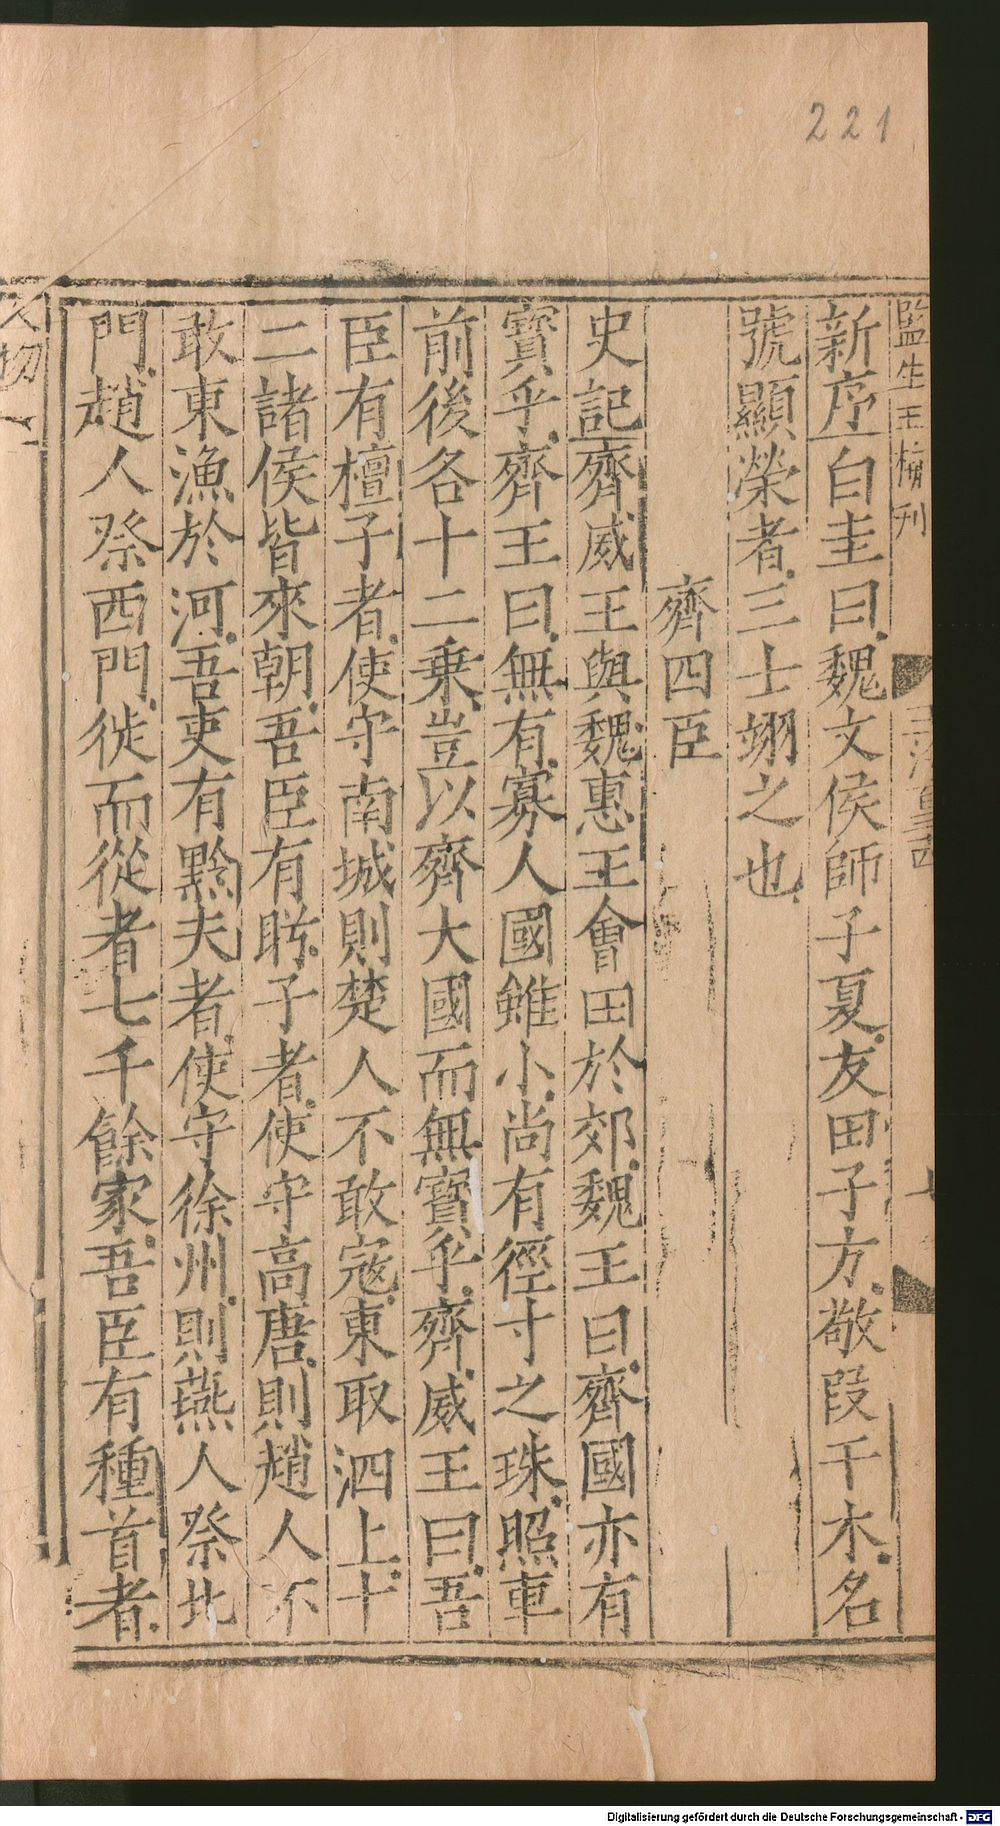 221
監生王楨刊
新序白圭曰魏文侯師子夏友田子方敬段干木名
號顯榮者三士翊之也
齊四臣
史記齊威王與魏惠王會田於郊魏王曰齊國亦有
寶乎齊王曰無有寡人國雖小尚有徑寸之珠照車
前後各十二乗豈以齊大國而無寶乎齊威王曰吾
臣有檀子者使守南城則楚人不敢寇東取泗上十
二諸侯皆來朝吾臣有盻子者使守高唐則趙人不
敢東漁於河吾吏有黔夫者使守徐州則燕人祭北
門趙人祭西門徙而從者七千餘家吾臣有種首者
人物一
Digitalisierung gefördert durch die Deutsche Forschungsgemeinschaft - DFG